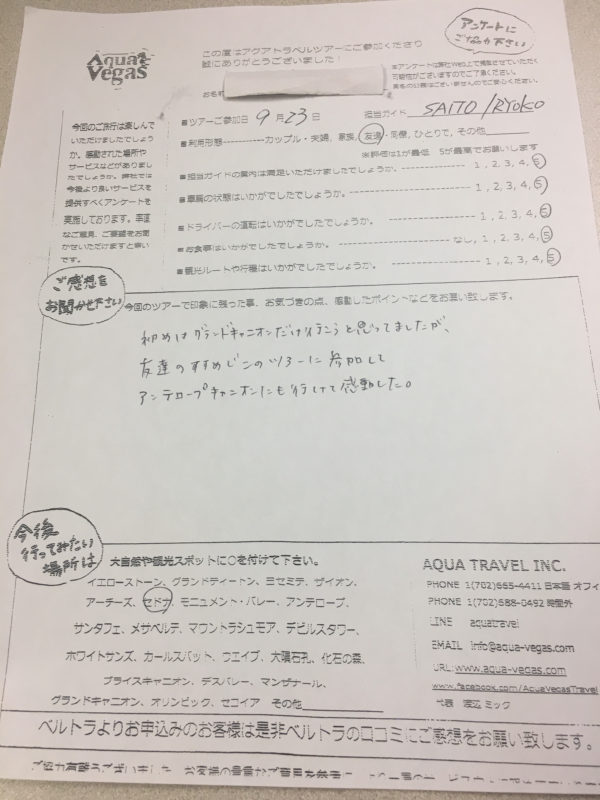 Aqua Vegas
この度はアクアトラベルツアーにご参加くださり
誠にありがとうございました！
アンケートに
ご協力下さい
※アンケートは弊社Web上で掲載させていただく
可能性がございますのでご了承ください。
お名前
■ツアーご参加日 9 月 23 日
担当ガイド SAITO / RYOKO
■利用形態----------カップル・夫婦、家族、友達・同僚、ひとりで、その他
※評価は1が最低 5が最高でお願いします
■担当ガイドの案内は満足いただけましたでしょうか。 1 , 2, 3, 4, 5
■車輌の状態はいかがでしたでしょうか。 1 , 2, 3, 4, 5
■ドライバーの運転はいかがでしたでしょうか。 1 , 2, 3, 4, 5
■お食事はいかがでしたでしょうか。 なし, 1 , 2, 3, 4, 5
■観光ルートや行程はいかがでしたでしょうか。 1 , 2, 3, 4, 5
今回のご旅行は楽しんで
いただけましたでしょう
か。感動された場所や
サービスなどがありまし
たでしょうか。弊社では
今後より良いサービスを
提供すべくアンケートを
実施しております。率直
なご意見、ご要望をお聞
かせいただけますと幸い
です。
ご感想を
お聞かせ下さい
今回のツアーで印象に残った事、お気づきの点、感動したポイントなどをお願い致します。
初めはグランドキャニオンだけ行こうと思ってましたが、
友達のすすめでこのツアーに参加して
アンテロープキャニオンにも行けて感動した。
今後
行ってみたい
場所は
大自然や観光スポットに○を付けて下さい。
イエローストーン、グランドティートン、ヨセミテ、ザイオン、
アーチーズ、セドナ、モニュメント・バレー、アンテロープ、
サンタフェ、メサベルデ、マウントラシュモア、デビルスタワー、
ホワイトサンズ、カールスバット、ウエイブ、大隕石孔、化石の森、
ブライスキャニオン、デスバレー、マンザナール、
グランドキャニオン、オリンピック、セコイア その他
AQUA TRAVEL INC.
PHONE 1(702)665-4411 日本語 オフィ
PHONE 1(702)688-0492 時間外
LINE aquatravel
EMAIL info@aqua-vegas.com
URL: www.aqua-vegas.com
www.facebook.com/AquaVegasTravel
代表 渡辺 ミック
ベルトラよりお申込みのお客様は是非ベルトラの口コミにご感想をお願い致します。